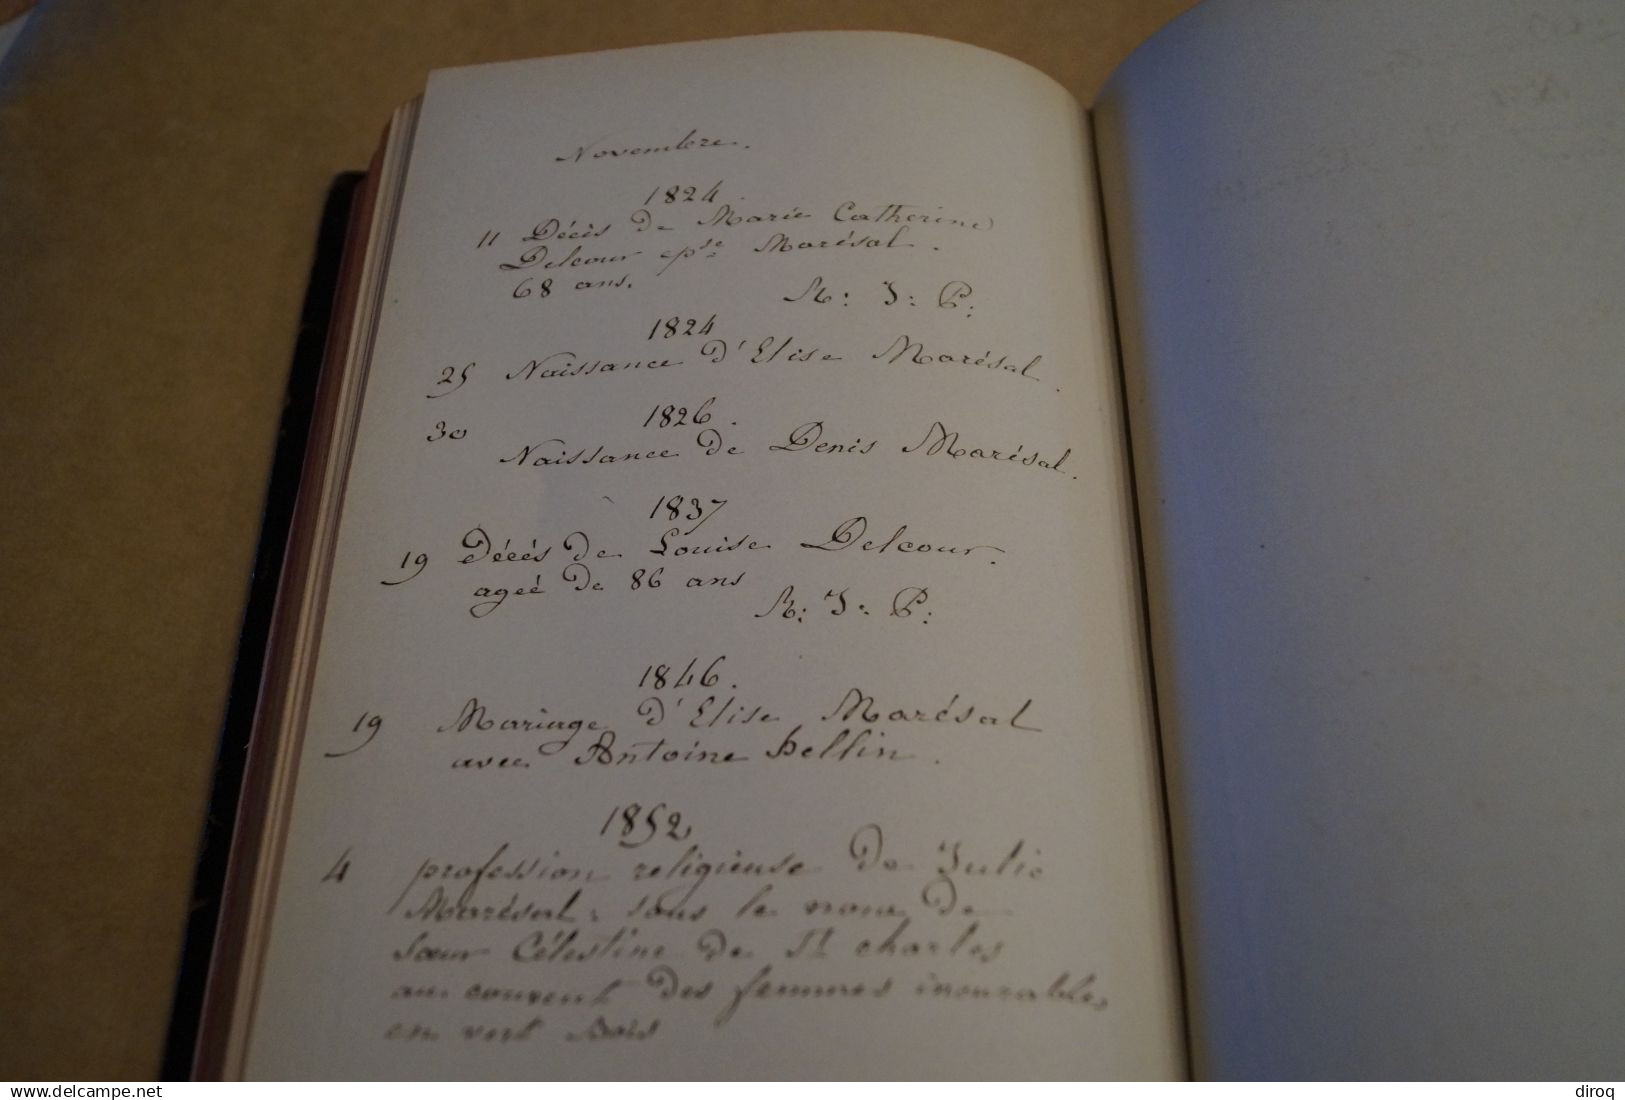 Novembre.
1824.
11 Décès de Marie Catherine
Delcour epse Marésal.
68 ans.
R: I: P:
1824
25 Naissance d'Elise Marésal.
1826.
30 Naissance de Denis Marésal.
1837
19 Décés de Louise Delcour.
agéé de 86 ans
R: I: P:
1846.
19 Mariage d'Elise Marésal
avec Antoine Hellin.
1852
4 profession religieuse de Julie
Marésal, sous le nom de
sœur Célestine de St charles
au couvent des femmes incurables
en vert Bois
Delcampe.net
diroq